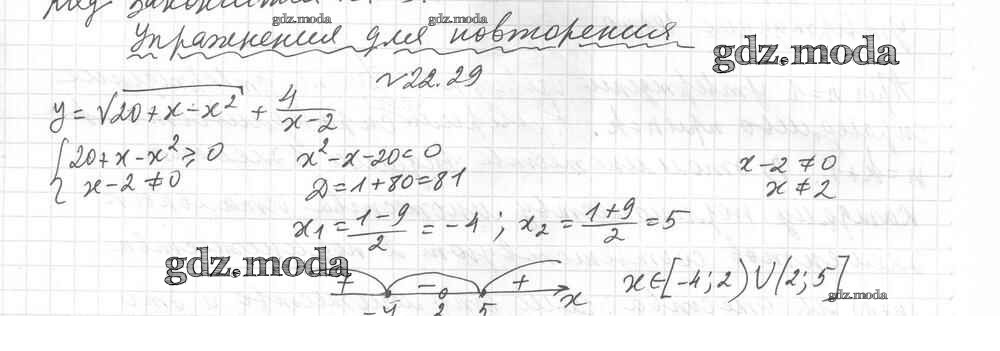 gdz.moda gdz.moda
Упражнения для повторения
gdz.moda
№22.29
y = √(20+x-x²) + 4/(x-2)
{20+x-x² ≥ 0 x²-x-20 < 0 x-2 ≠ 0
x-2 ≠ 0 D = 1+80 = 81 x ≠ 2
x₁ = (1-9)/2 = -4 ; x₂ = (1+9)/2 = 5
gdz.moda
+ - + x x∈[-4;2)∪(2;5]
gdz.moda
-4 2 5